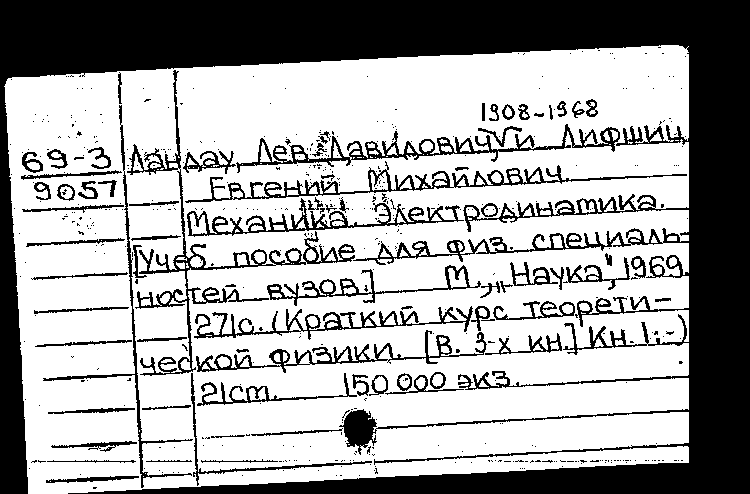 1908-1968
69-3 Ландау, Лев Давидович, и Лифшиц,
9057 Евгений Михайлович.
Механика. Электродинамика.
[Учеб. пособие для физ. специаль-
ностей вузов.] М., „Наука", 1969.
271с. (Краткий курс теорети-
ческой физики. [В. 3-х кн.] Кн. 1:-)
21см. 150 000 экз.